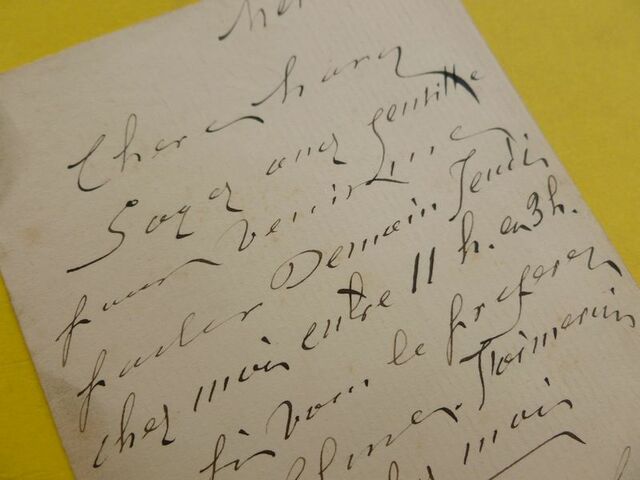 Mer
Chere
Soyez assez gentille
pour venir me
parler Demain Jeudi
chez moi entre 11 h. en 3 h.
si vous le preferez
chez moi